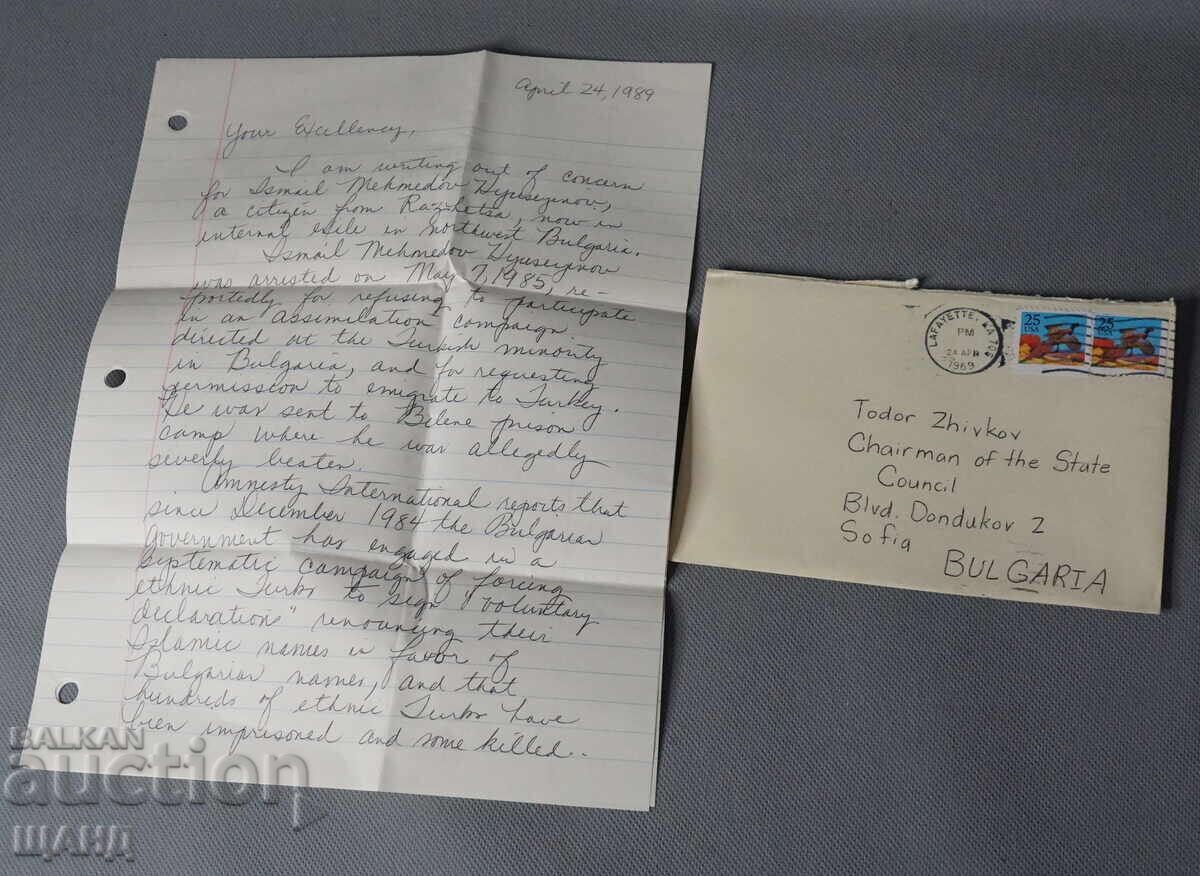 April 24, 1989
Your Excellency,
I am writing out of concern
for Ismail Mehmedov Hyuseyinov,
a citizen from Razhetsa, now in
internal exile in northwest Bulgaria.
Ismail Mehmedov Hyuseyinov
was arrested on May 7, 1985, re-
portedly for refusing to participate
in an assimilation campaign
directed at the Turkish minority
in Bulgaria, and for requesting
permission to emigrate to Turkey.
He was sent to Belene prison
camp where he was allegedly
severly beaten.
Amnesty International reports that
since December 1984 the Bulgarian
Government has engaged in a
systematic campaign of forcing
ethnic Turks to sign "voluntary
declarations" renouncing their
Islamic names in favor of
Bulgarian names, and that
hundreds of ethnic Turks have
been imprisoned and some killed..
LAFAYETTE, LA
PM
24 APR
1989
25
USA
25
USA
Todor Zhivkov
Chairman of the State
Council
Blvd. Dondukov 2
Sofia
BULGARIA
BALKAN
auction
ШАНД